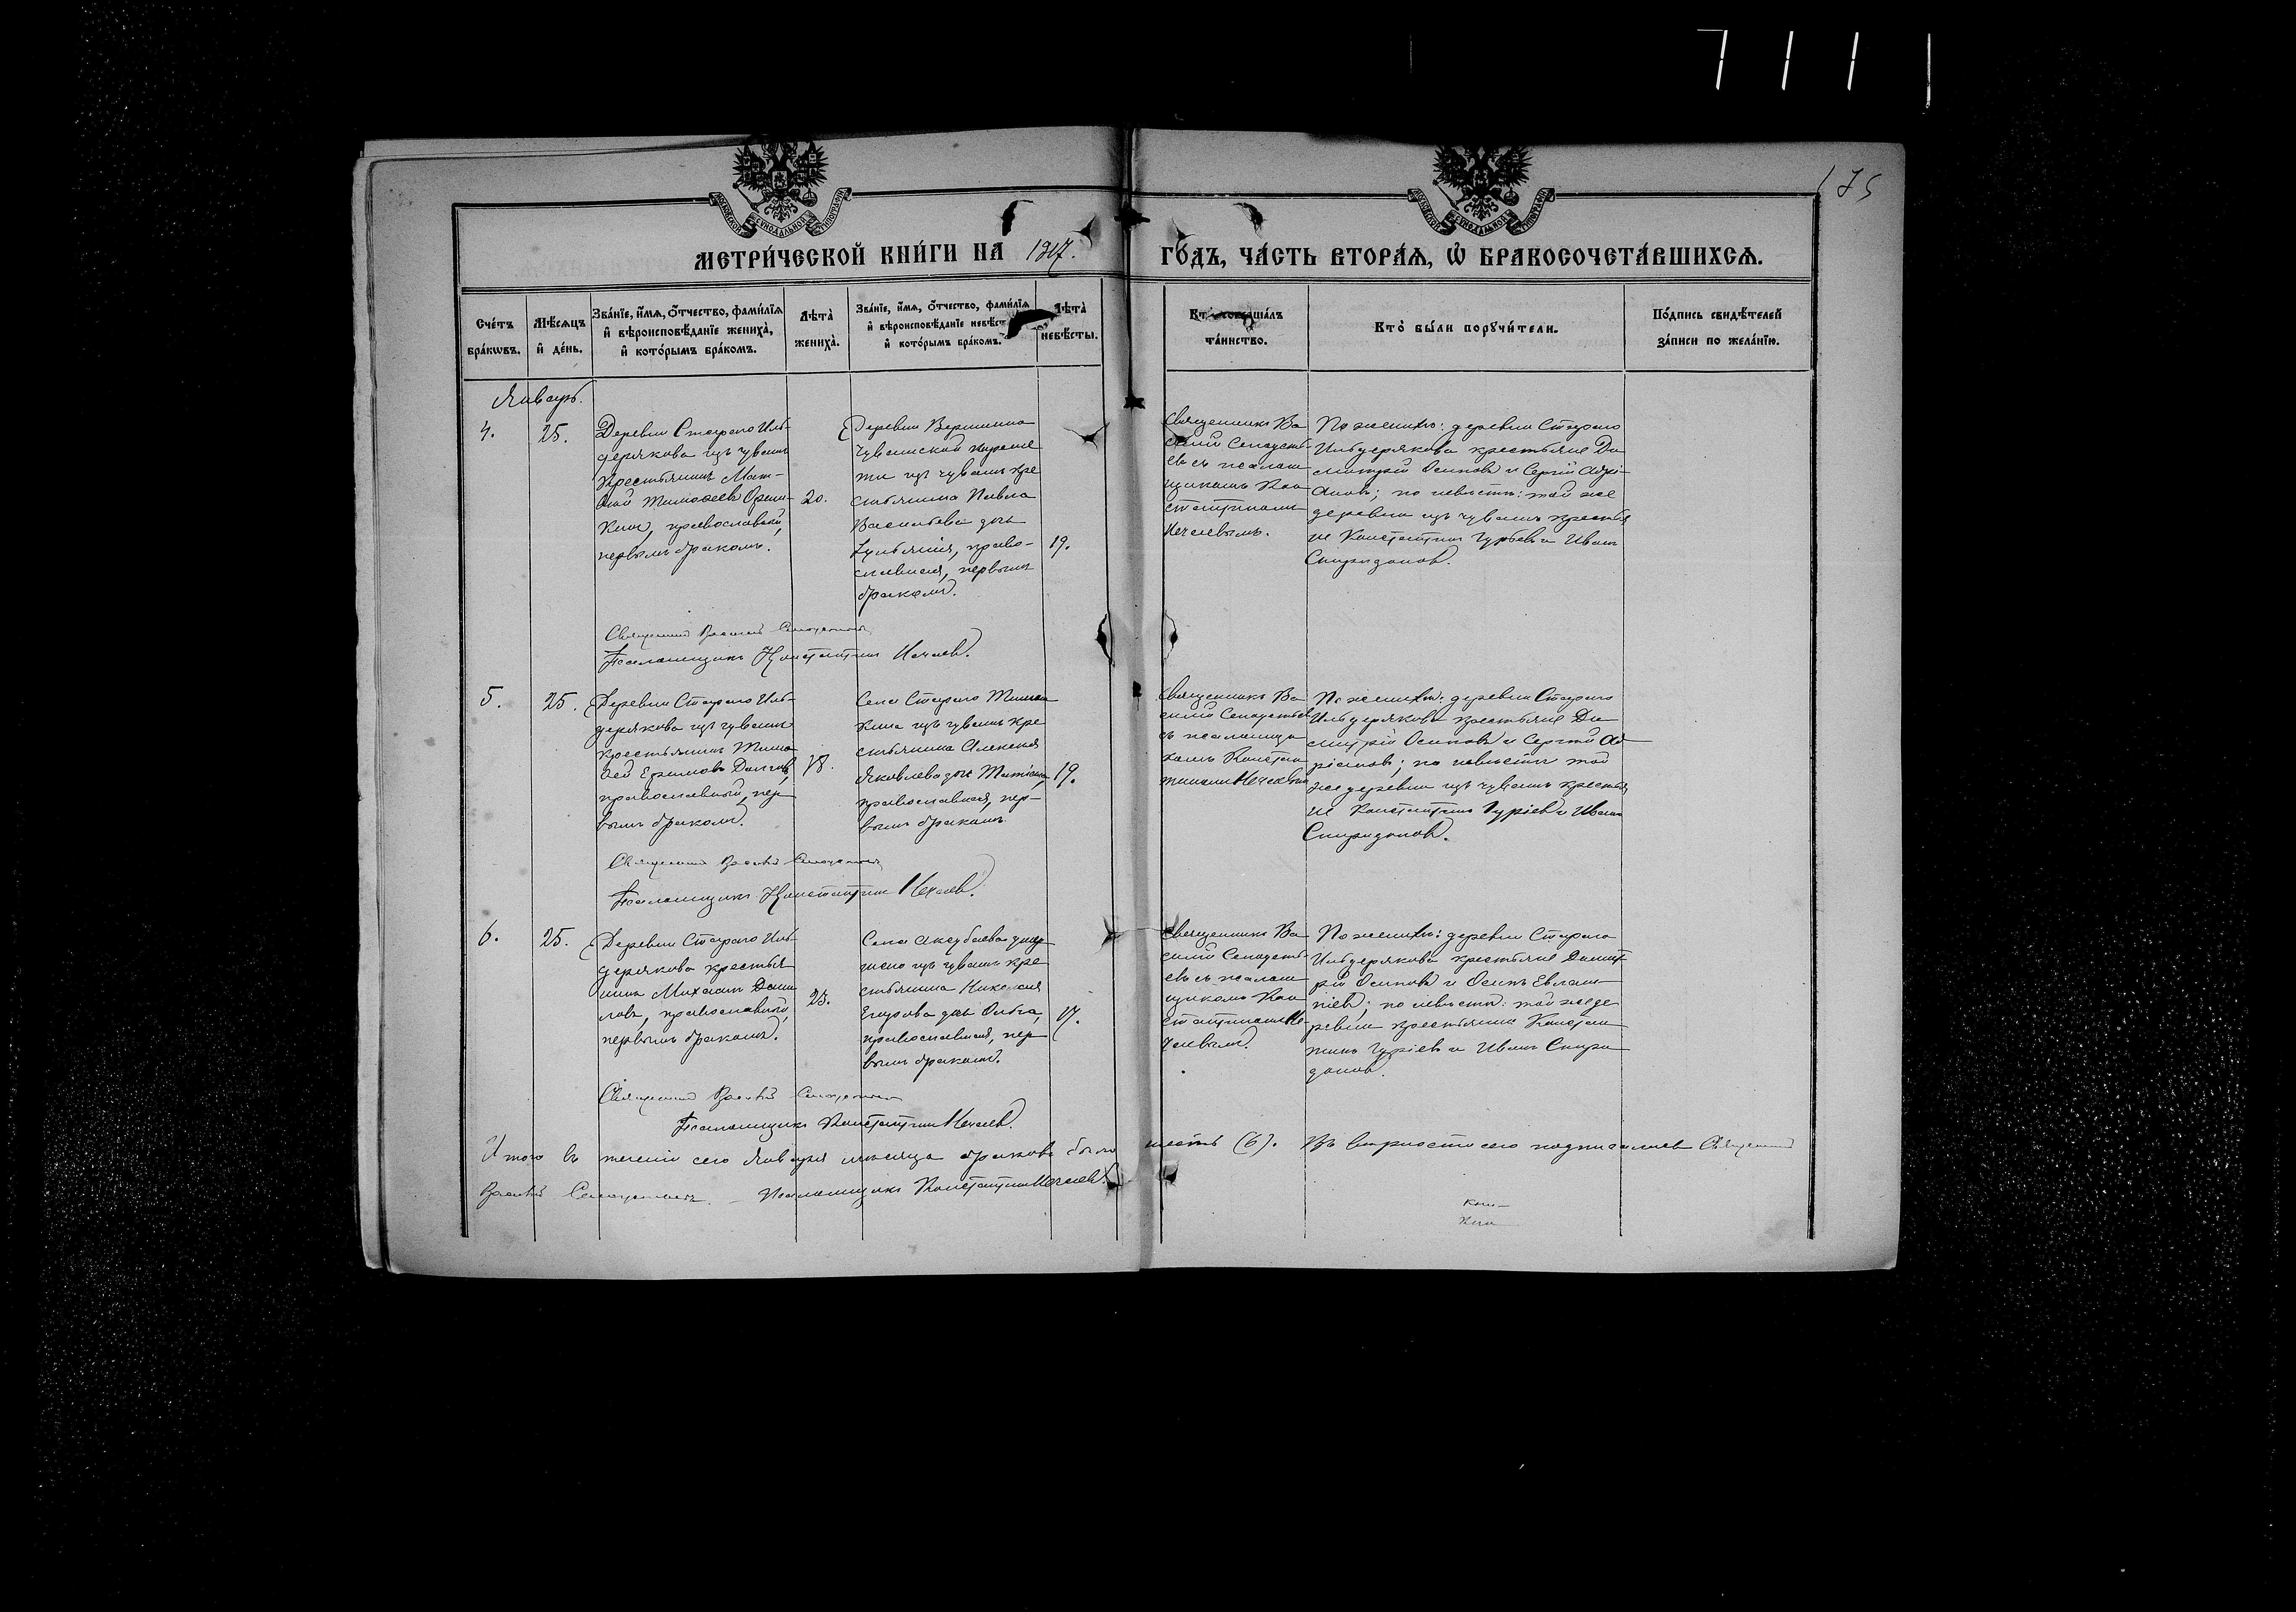 7111
175
МОСКОВСКОЙ СѴНОДАЛЬНОЙ ТИПОГРАФІИ
МОСКОВСКОЙ СѴНОДАЛЬНОЙ ТИПОГРАФІИ
МЕТРИ́ЧЕСКОЙ КНИ́ГИ НА 1917. ГО́ДЪ, ЧА́СТЬ ВТОРА́Ѧ, Ѡ БРАКОСОЧЕТА́ВШИХСѦ.
Сче́тъ бра́кѡвъ.
Мѣ́сѧцъ и де́нь.
Зва́нїе, и́мѧ, о́тчество, фами́лїѧ
и вѣроисповѣ́данїе жениха̀,
и кото́рымъ бра́комъ.
Лѣта̀ жениха̀.
Зва́нїе, и́мѧ, о́тчество, фами́лїѧ
и вѣроисповѣ́данїе невѣст
и кото́рымъ бра́комъ.
Лѣта̀ невѣ́сты.
та́инство.
Кто̀ бы́ли порꙋчи́тели.
По́дпись свидѣ́телей
за́писи по жела́нїю.
Январь.
4.
25.
Деревни Стараго Иль-
дерякова изъ чувашъ
крестьянинъ Мат-
вѣй Тимоѳеевъ
православный,
первымъ бракомъ.
20.
Деревни Вершина
Чувашской
изъ чувашъ кре
стьянина Павла
Васильева дочь
право-
славная, первымъ
бракомъ.
19.
Священникъ Ва
силій
съ псалом
щикомъ Кон
стантиномъ
Нечаевымъ.
По женихѣ: деревни Стараго
Ильдерякова крестьяне Ди
митрій Осиповъ и Сергій Адрі-
ановъ; по невѣстѣ: той же
деревни изъ чувашъ крестья
не Константинъ Гурьевъ и Иванъ
Спиридоновъ.
Священникъ Василій
Псаломщикъ Константинъ Нечаевъ.
5.
25.
Деревни Стараго Иль-
дерякова изъ чувашъ
крестьянинъ Тимо
ѳей Ефимовъ Долговъ,
православный, пер
вымъ бракомъ.
18.
Села Стараго
изъ чувашъ кре
стьянина Алексѣя
Яковлева дочь Татіана,
православная, пер-
вымъ бракомъ.
19.
Священникъ Ва
силій
съ псаломщи
комъ Констан
тиномъ Нечаевымъ
По женихѣ: деревни Стараго
Ильдерякова крестьяне Ди
митрій Осиповъ и Сергій Ад
ріановъ; по невѣстѣ той
же деревни изъ чувашъ крестья
не Константинъ Гуріевъ и Иванъ
Спиридоновъ.
Священникъ Василій
Псаломщикъ Константинъ Нечаевъ.
6.
25.
Деревни Стараго Иль
дерякова крестья
нинъ Михаилъ Дани
ловъ, православный,
первымъ бракомъ.
23.
Села Аксубаева
изъ чувашъ кре
стьянина
Егорова дочь Ольга,
православная, пер
вымъ бракомъ.
17.
Священникъ Ва
силій
съ псалом
щикомъ Кон
стантиномъ Не-
чаевымъ.
По женихѣ: деревни Стараго
Ильдерякова крестьяне Димит
рій Осиповъ и Осипъ Евлам
піевъ; по невѣстѣ: той же де
ревни крестьяне Констан
тинъ Гуріевъ и Иванъ Спири
доновъ.
Священникъ Василій
Псаломщикъ Константинъ Нечаевъ.
Итого въ теченіи сего Января мѣсяца браковъ было шесть (6). Въ вѣрности сего подписались Священникъ
Василій Псаломщикъ Константинъ Нечаевъ.